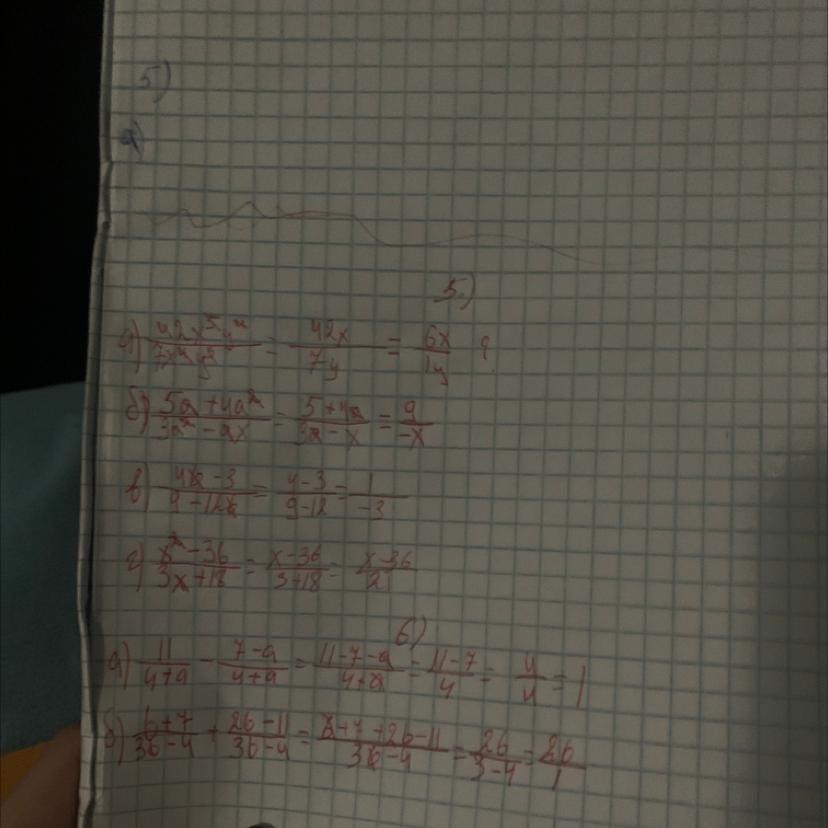 5)
а)
5.)
а) 42x⁵y⁴ / 7x⁴y² = 42x / 7y = 6x / 1y
б) 5a + 4a² / 3a² - ax = 5 + 4a / 3a - x = 9 / -x
в) 4x - 3 / 9 - 12x = 4 - 3 / 9 - 12 = 1 / -3
г) x² - 36 / 3x + 18 = x - 36 / 3 + 18 = x - 36 / 21
6)
а) 11 / 4 + a - 7 - a / 4 + a = 11 - 7 - a / 4 + a = 11 - 7 / 4 = 4 / 4 = 1
б) b + 7 / 3b - 4 + 2b - 11 / 3b - 4 = b + 7 + 2b - 11 / 3b - 4 = 2b / 3 - 4 = 2b / 1